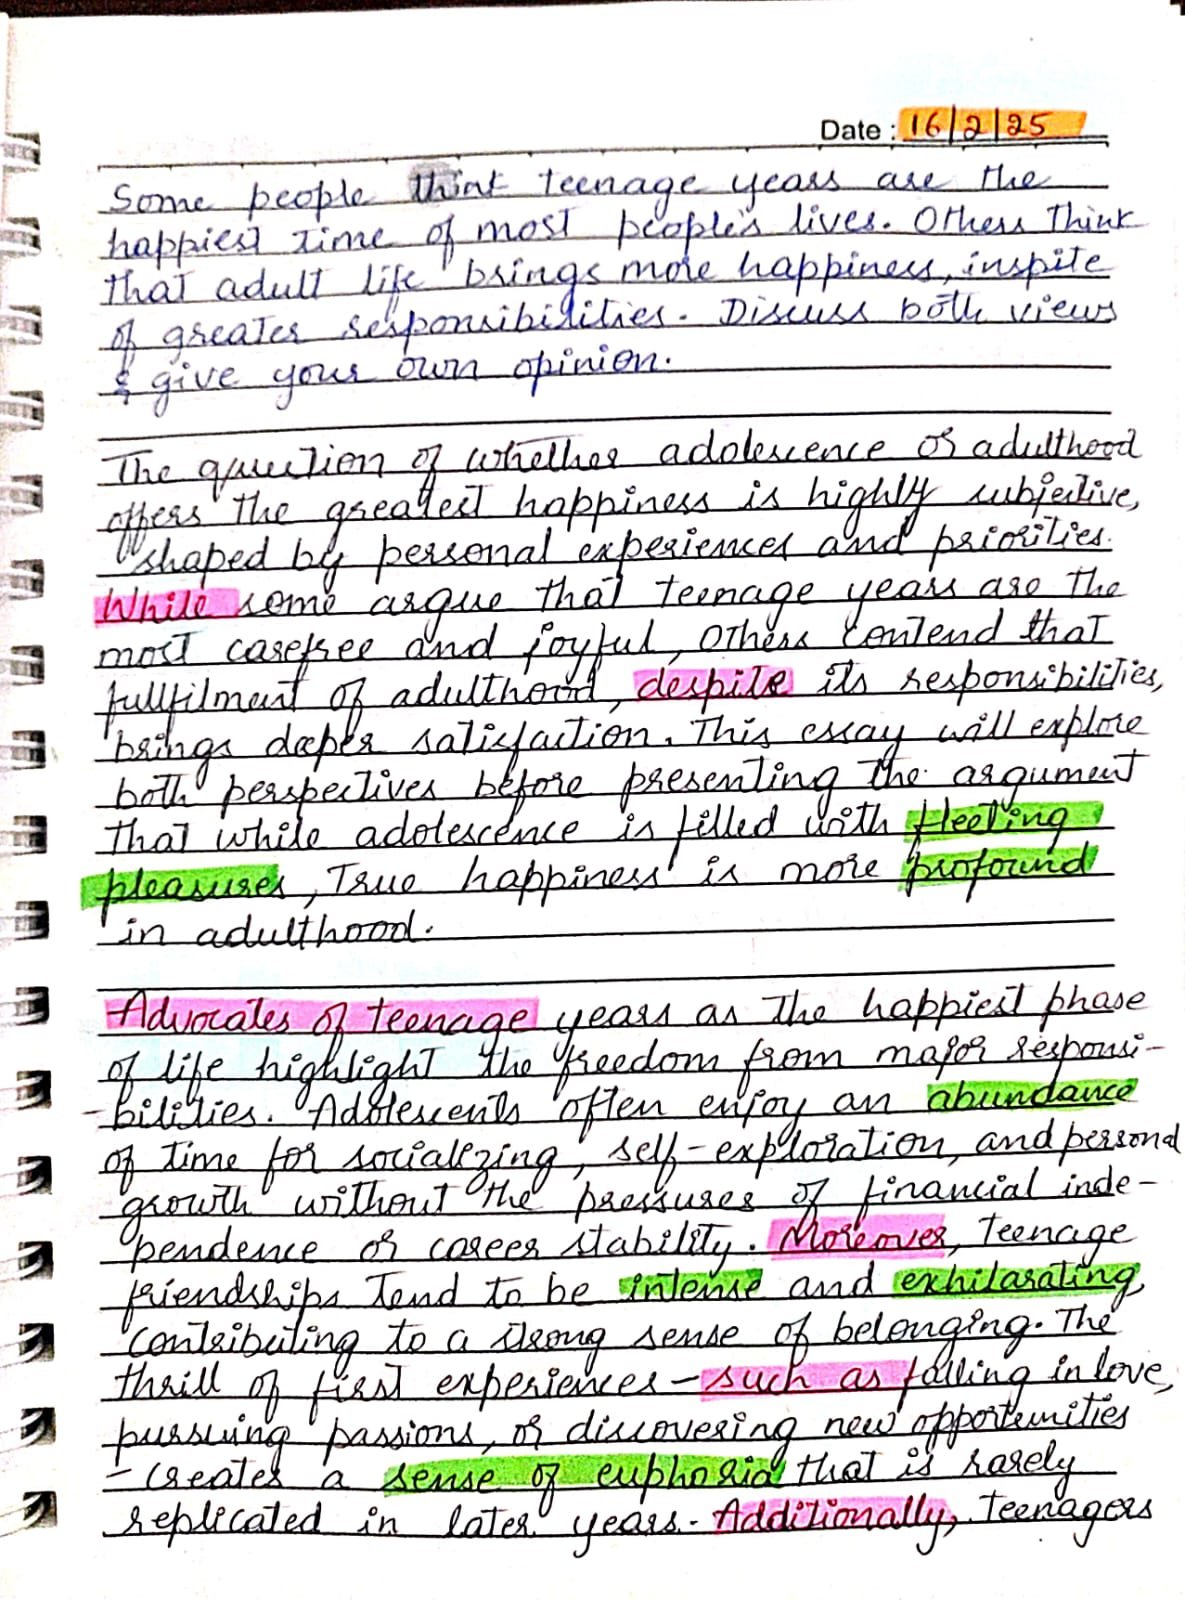 Date : 16/2/25
Some people think teenage years are the
happiest time of most people's lives. Others think
that adult life brings more happiness, inspite
of greater responsibilities. Discuss both views
& give your own opinion.
The question of whether adolescence or adulthood
offers the greatest happiness is highly subjective,
shaped by personal experiences and priorities.
While some argue that teenage years are the
most carefree and joyful, others contend that
fullfilment of adulthood, despite its responsibilities,
brings deeper satisfaction. This essay will explore
both perspectives before presenting the argument
that while adolescence is filled with fleeting
pleasures, true happiness is more profound
in adulthood.
Advocates of teenage years as the happiest phase
of life highlight the freedom from major responsi-
-bilities. Adolescents often enjoy an abundance
of time for socializing, self-exploration, and personal
growth without the pressures of financial inde-
pendence or career stability. Moreover, teenage
friendships tend to be intense and exhilarating,
contributing to a strong sense of belonging. The
thrill of first experiences - such as falling in love,
pursuing passions, or discovering new opportunities
- creates a sense of euphoria that is rarely
replicated in later years. Additionally, teenagers